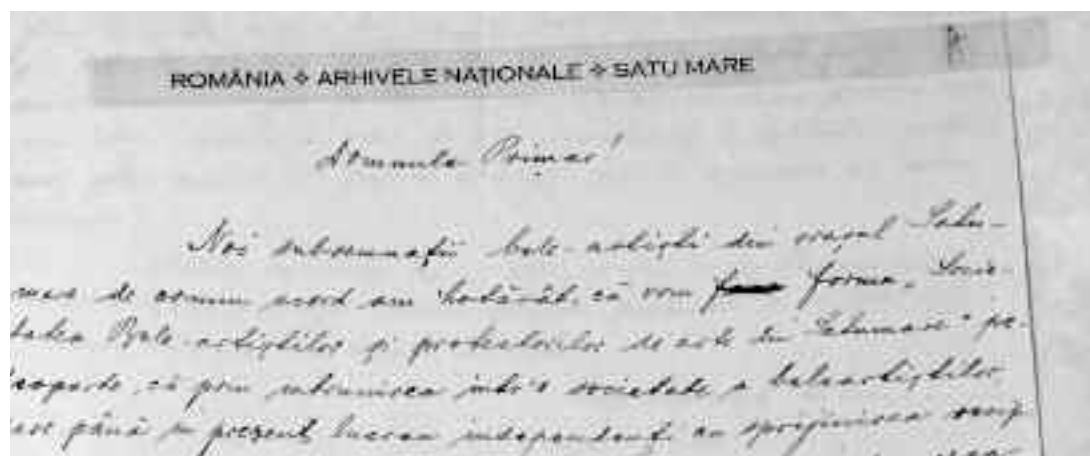 ROMÂNIA ❖ ARHIVELE NAȚIONALE ❖ SATU MARE
Domnule Primar!
Noi subsemnații bele-artiști din orașul Satu-
mare de comun acord am hotărât, că vom forma „Socie-
tatea Bele-artiștilor și protectorilor de arte din Satumare" pe
deoparte, că prin întrunirea într'o societate a beleartiștilor,
care până în prezent lucrau independent, cu sprijinirea